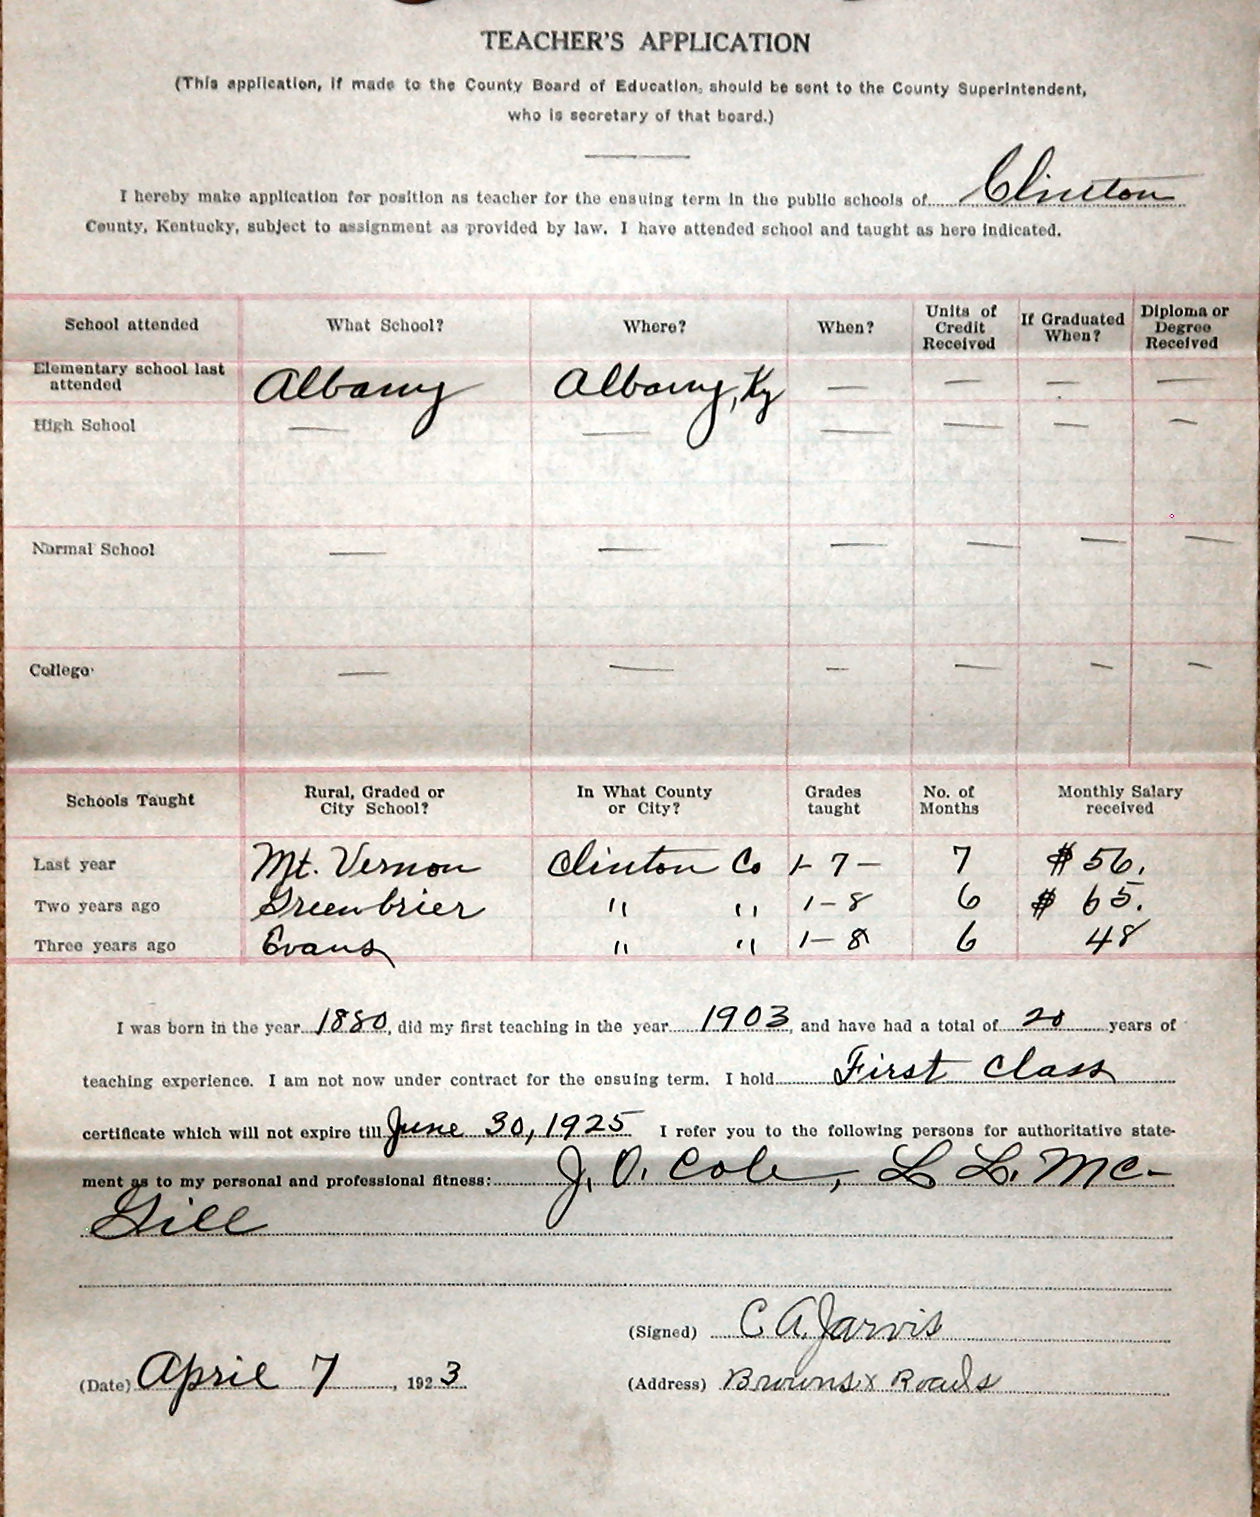 TEACHER'S APPLICATION
(This application, if made to the County Board of Education, should be sent to the County Superintendent,
who is secretary of that board.)
I hereby make application for position as teacher for the ensuing term in the public schools of Clinton
County, Kentucky, subject to assignment as provided by law. I have attended school and taught as here indicated.
School attended What School? Where? When? Units of Credit Received If Graduated When? Diploma or Degree Received
Elementary school last attended Albany Albany, Ky — — — —
High School — — — — — —
Normal School — — — — — —
College — — — — — —
Schools Taught Rural, Graded or City School? In What County or City? Grades taught No. of Months Monthly Salary received
Last year Mt. Vernon Clinton Co 1-7- 7 $56.
Two years ago Greenbrier " " 1-8 6 $ 65.
Three years ago Evans " " 1-8 6 48
I was born in the year 1880, did my first teaching in the year 1903, and have had a total of 20 years of
teaching experience. I am not now under contract for the ensuing term. I hold First Class
certificate which will not expire till June 30, 1925 I refer you to the following persons for authoritative state-
ment as to my personal and professional fitness: J. O. Cole, L L. Mc-
Gill
(Signed) C. A. Jarvis
(Date) April 7, 1923 (Address) Browns x Roads